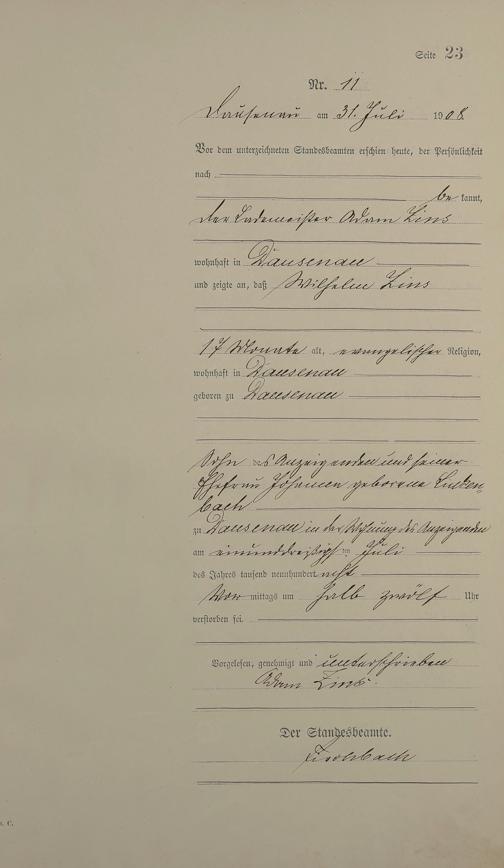 Seite 23
Nr. 11
Dausenau am 31. Juli 1908
Vor dem unterzeichneten Standesbeamten erschien heute, der Persönlichkeit
nach
be kannt,
der Lademeister Adam Zins
wohnhaft in Dausenau
und zeigte an, daß Wilhelm Zins
17 Monate alt, evangelischer Religion,
wohnhaft in Dausenau
geboren zu Dausenau
Sohn des Anzeigenden und seiner
Ehefrau geborene
bach
zu Dausenau in der Wohnung des Anzeigenden
am einunddreißigsten Juli
des Jahres tausend neunhundert acht
Vor mittags um halb zwölf Uhr
verstorben sei.
Vorgelesen, genehmigt und unterschrieben
Adam Zins
Der Standesbeamte.